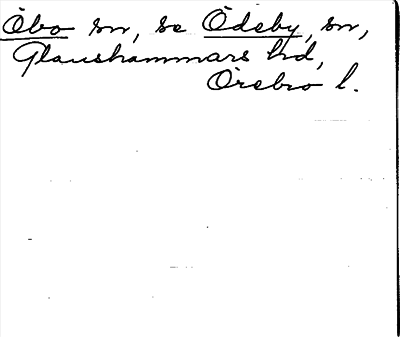 Öbo sn, se Ödeby, sn,
Glanshammars hd,
Örebro l.